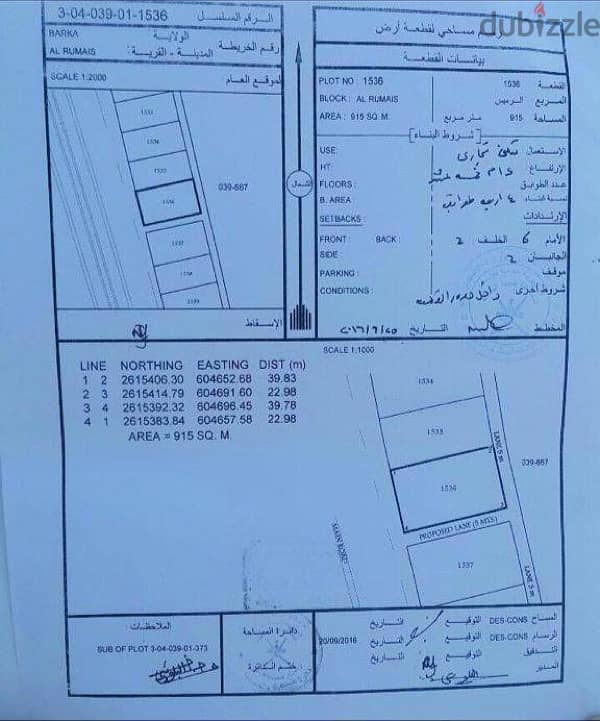 3-04-039-01-1536 الرقم المسلسل
BARKA الولاية
AL RUMAIS المدينة - القرية: رقم الخريطة
SCALE 1:2000 الموقع العام
1533
1534
1535
1536
1537
1538
1539
039-667
الإسقاط
الشمال
dubizzle
رسم مساحي لقطعة أرض
بيانات القطعة
PLOT NO : 1536 1536 القطعة
BLOCK : AL RUMAIS الرميس المربع
AREA : 915 SQ. M. متر مربع 915 المساحة
[ شروط البناء ]
USE: سكني تجاري الاستعمال
HT: الإرتفاع
FLOORS : عدد الطوابق
B. AREA نسبة البناء
SETBACKS : الإرتدادات
FRONT : BACK : 2 الخلف 6 الأمام
SIDE : 2 الجانبان
PARKING : موقف
CONDITIONS : شروط أخرى
المخطط التاريخ
SCALE 1:1000
LINE NORTHING EASTING DIST (m)
1 2 2615406.30 604652.68 39.83
2 3 2615414.79 604691.60 22.98
3 4 2615392.32 604696.45 39.78
4 1 2615383.84 604657.58 22.98
AREA = 915 SQ. M.
1534
1535
1536
1537
LANE 5 m
039-667
PROPOSED LANE (5 MTS)
MAIN ROAD
LANE 5 m
الملاحظات
SUB OF PLOT 3-04-039-01-373
دائرة المساحة
ختم الدائرة
المساح DES-CONS التوقيع التاريخ
الرسام DES-CONS التوقيع التاريخ 20/09/2016
التدقيق التوقيع التاريخ
المدير